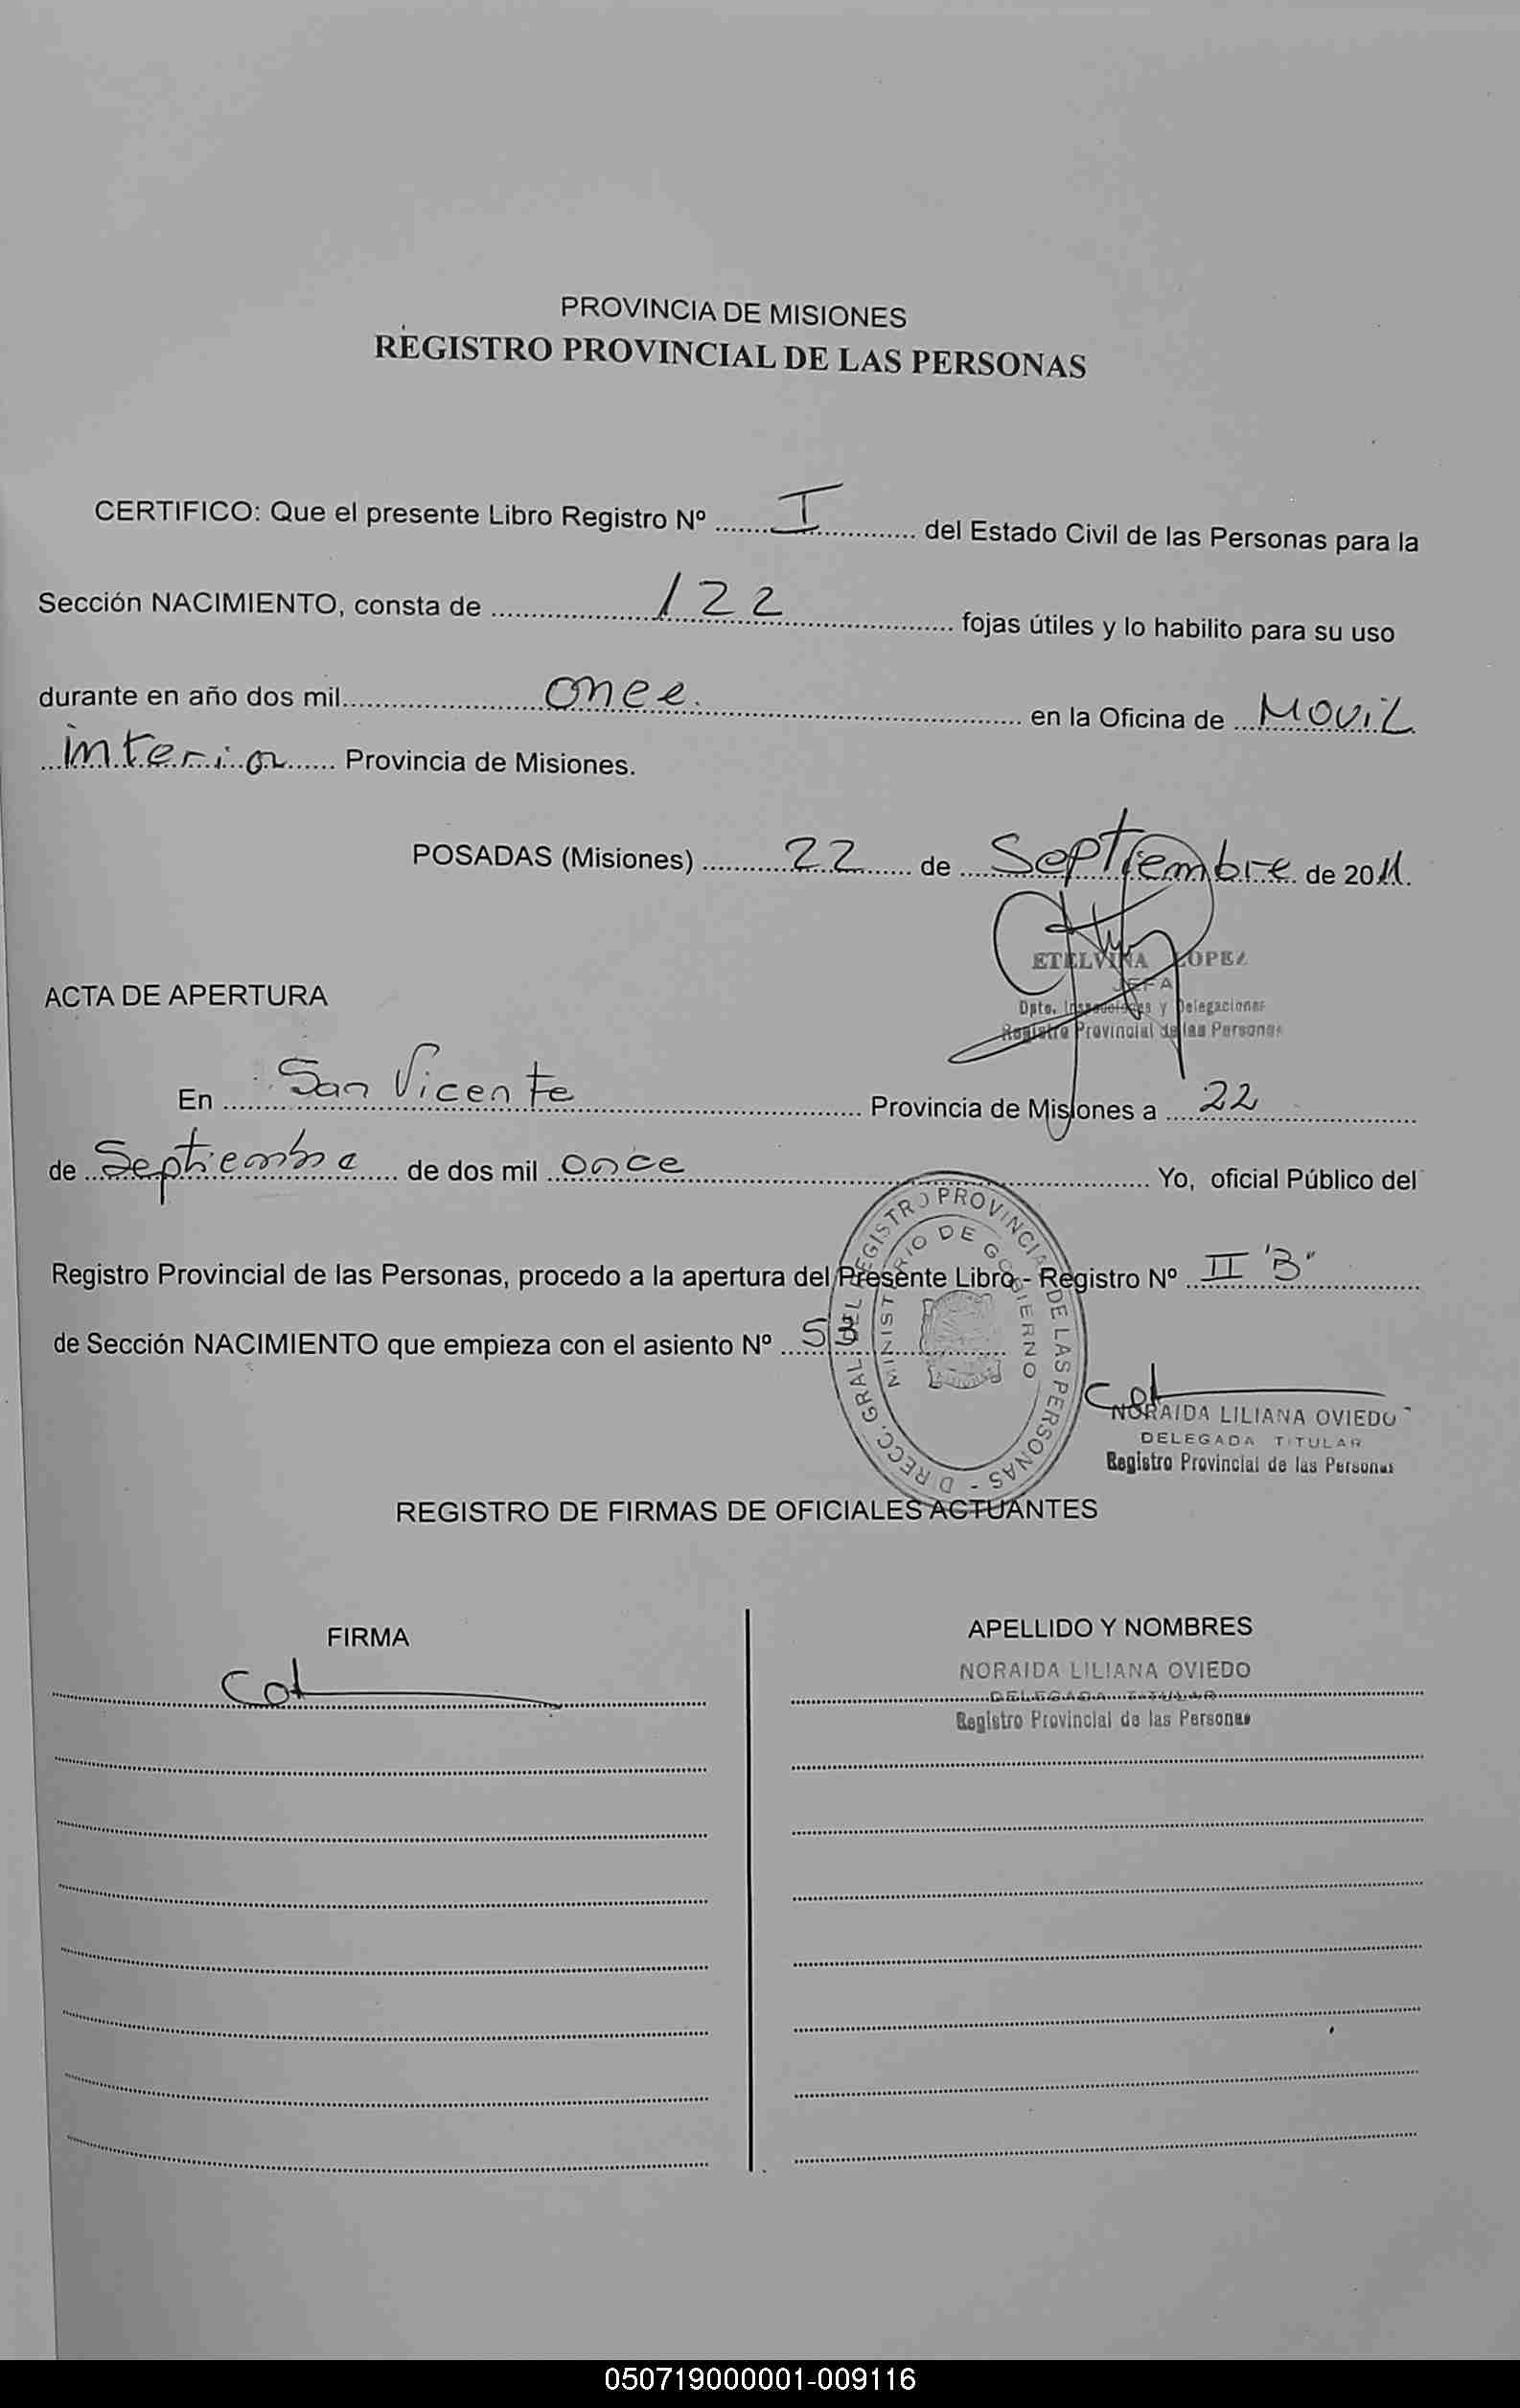 PROVINCIA DE MISIONES
REGISTRO PROVINCIAL DE LAS PERSONAS
CERTIFICO: Que el presente Libro Registro Nº I del Estado Civil de las Personas para la
Sección NACIMIENTO, consta de 122 fojas útiles y lo habilito para su uso
durante en año dos mil once. en la Oficina de MOVIL
interior Provincia de Misiones.
POSADAS (Misiones) 22 de Septiembre de 2011.
ETELVINA LOPEZ
JEFA
Dpto. Inspectores y Delegaciones
Registro Provincial de las Personas
ACTA DE APERTURA
En San Vicente Provincia de Misiones a 22
de Septiembre de dos mil once Yo, oficial Público del
Registro Provincial de las Personas, procedo a la apertura del Presente Libro - Registro Nº II "B"
de Sección NACIMIENTO que empieza con el asiento Nº
DIRECC. GRAL. DEL REGISTRO PROVINCIAL DE LAS PERSONAS -
MINISTERIO DE GOBIERNO
NORAIDA LILIANA OVIEDO
DELEGADA TITULAR
Registro Provincial de las Personas
REGISTRO DE FIRMAS DE OFICIALES ACTUANTES
FIRMA
APELLIDO Y NOMBRES
NORAIDA LILIANA OVIEDO
DELEGADA TITULAR
Registro Provincial de las Personas
050719000001-009116